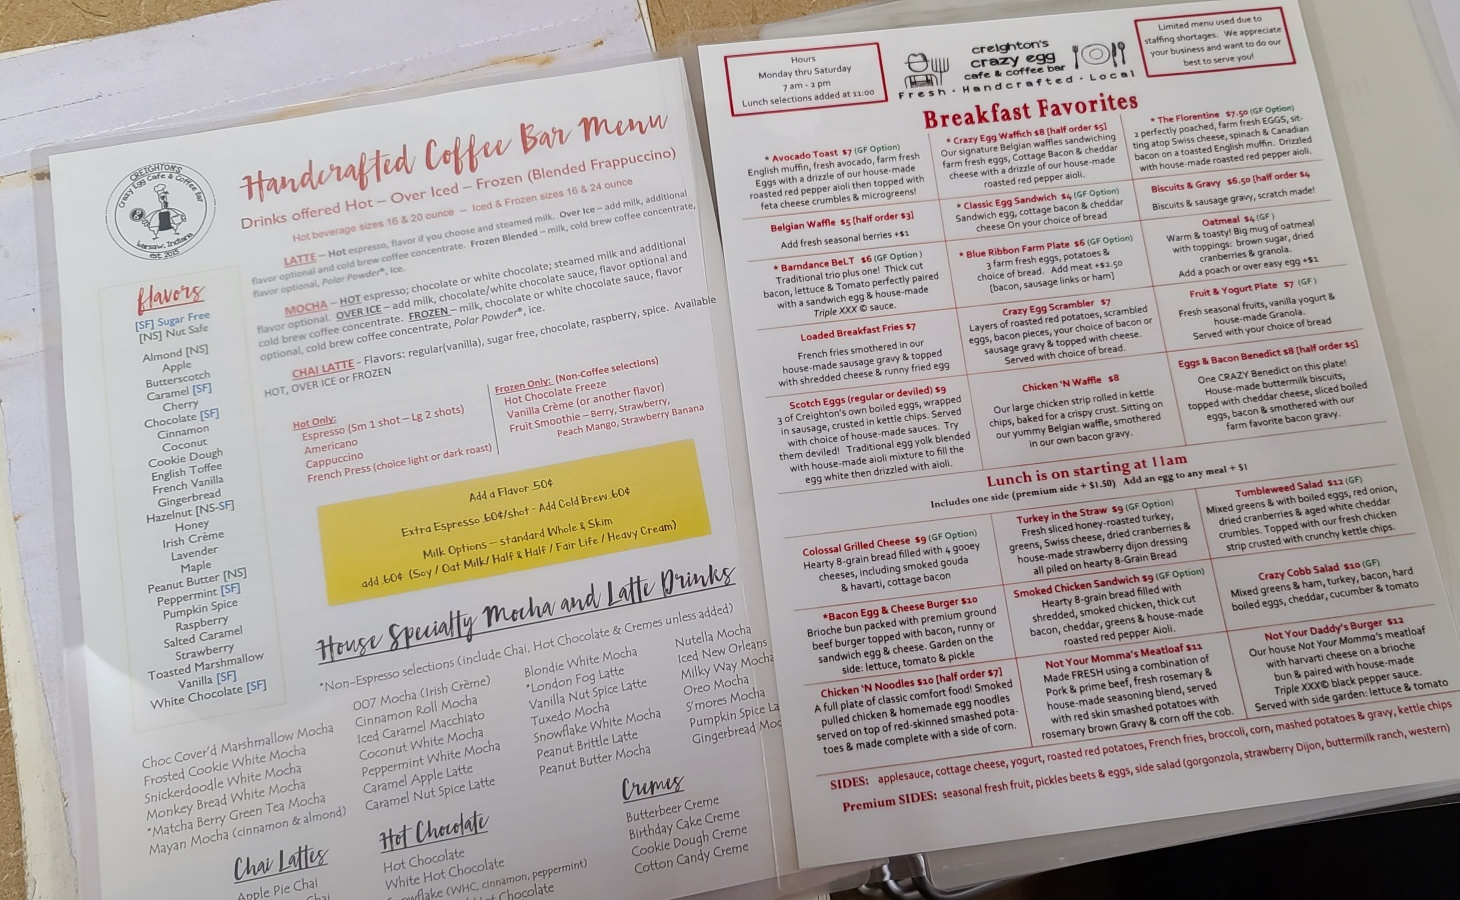 Handcrafted Coffee Bar Menu
CREIGHTON'S
Crazy Egg Cafe & Coffee Bar
Warsaw, Indiana
est 2015
Drinks offered Hot – Over Iced – Frozen (Blended Frappuccino)
Hot beverage sizes 16 & 20 ounce – Iced & Frozen sizes 16 & 24 ounce
LATTE – Hot espresso, flavor if you choose and steamed milk. Over Ice – add milk, additional
flavor optional and cold brew coffee concentrate. Frozen Blended – milk, cold brew coffee concentrate,
flavor optional, Polar Powder®, ice.
MOCHA – HOT espresso; chocolate or white chocolate; steamed milk and additional
flavor optional. OVER ICE – add milk, chocolate/white chocolate sauce, flavor optional and
cold brew coffee concentrate. FROZEN – milk, chocolate or white chocolate sauce, flavor
optional, cold brew coffee concentrate, Polar Powder®, ice.
CHAI LATTE - Flavors: regular(vanilla), sugar free, chocolate, raspberry, spice. Available
HOT, OVER ICE or FROZEN
Hot Only:
Espresso (Sm 1 shot – Lg 2 shots)
Americano
Cappuccino
French Press (choice light or dark roast)
Frozen Only: (Non-Coffee selections)
Hot Chocolate Freeze
Vanilla Crème (or another flavor)
Fruit Smoothie – Berry, Strawberry,
Peach Mango, Strawberry Banana
Add a Flavor 50¢
Extra Espresso .60¢/shot - Add Cold Brew .60¢
Milk Options – standard Whole & Skim
add .60¢ (Soy / Oat Milk/ Half & Half / Fair Life / Heavy Cream)
flavors
[SF] Sugar Free
[NS] Nut Safe
Almond [NS]
Apple
Butterscotch
Caramel [SF]
Cherry
Chocolate [SF]
Cinnamon
Coconut
Cookie Dough
English Toffee
French Vanilla
Gingerbread
Hazelnut [NS-SF]
Honey
Irish Crème
Lavender
Maple
Peanut Butter [NS]
Peppermint [SF]
Pumpkin Spice
Raspberry
Salted Caramel
Strawberry
Toasted Marshmallow
Vanilla [SF]
White Chocolate [SF]
House Specialty Mocha and Latte Drinks
*Non-Espresso selections (include Chai, Hot Chocolate & Cremes unless added)
Choc Cover'd Marshmallow Mocha
Frosted Cookie White Mocha
Snickerdoodle White Mocha
Monkey Bread White Mocha
*Matcha Berry Green Tea Mocha
Mayan Mocha (cinnamon & almond)
007 Mocha (Irish Crème)
Cinnamon Roll Mocha
Iced Caramel Macchiato
Coconut White Mocha
Peppermint White Mocha
Caramel Apple Latte
Caramel Nut Spice Latte
Blondie White Mocha
*London Fog Latte
Vanilla Nut Spice Latte
Tuxedo Mocha
Snowflake White Mocha
Peanut Brittle Latte
Peanut Butter Mocha
Nutella Mocha
Iced New Orleans
Milky Way Mocha
Oreo Mocha
S'mores Mocha
Pumpkin Spice La
Gingerbread Moc
Chai Lattes
Apple Pie Chai
Hot Chocolate
Hot Chocolate
White Hot Chocolate
Snowflake (WHC, cinnamon, peppermint)
Hot Chocolate
Cremes
Butterbeer Creme
Birthday Cake Creme
Cookie Dough Creme
Cotton Candy Creme
Hours
Monday thru Saturday
7 am - 2 pm
Lunch selections added at 11:00
creighton's
crazy egg
cafe & coffee bar
Fresh · Handcrafted · Local
Limited menu used due to
staffing shortages. We appreciate
your business and want to do our
best to serve you!
Breakfast Favorites
* Avocado Toast $7 (GF Option)
English muffin, fresh avocado, farm fresh
Eggs with a drizzle of our house-made
roasted red pepper aioli then topped with
feta cheese crumbles & microgreens!
* Crazy Egg Waffich $8 [half order $5]
Our signature Belgian waffles sandwiching
farm fresh eggs, Cottage Bacon & cheddar
cheese with a drizzle of our house-made
roasted red pepper aioli.
* The Florentine $7.50 (GF Option)
2 perfectly poached, farm fresh EGGS, sit-
ting atop Swiss cheese, spinach & Canadian
bacon on a toasted English muffin. Drizzled
with house-made roasted red pepper aioli.
Belgian Waffle $5 [half order $3]
Add fresh seasonal berries +$1
* Classic Egg Sandwich $4 (GF Option)
Sandwich egg, cottage bacon & cheddar
cheese On your choice of bread
Biscuits & Gravy $6.50 [half order $4
Biscuits & sausage gravy, scratch made!
* Barndance BeLT $6 (GF Option )
Traditional trio plus one! Thick cut
bacon, lettuce & Tomato perfectly paired
with a sandwich egg & house-made
Triple XXX © sauce.
* Blue Ribbon Farm Plate $6 (GF Option)
3 farm fresh eggs, potatoes &
choice of bread. Add meat +$2.50
[bacon, sausage links or ham]
Oatmeal $4 (GF )
Warm & toasty! Big mug of oatmeal
with toppings: brown sugar, dried
cranberries & granola.
Add a poach or over easy egg +$1
Loaded Breakfast Fries $7
French fries smothered in our
house-made sausage gravy & topped
with shredded cheese & runny fried egg
Crazy Egg Scrambler $7
Layers of roasted red potatoes, scrambled
eggs, bacon pieces, your choice of bacon or
sausage gravy & topped with cheese.
Served with choice of bread.
Fruit & Yogurt Plate $7 (GF )
Fresh seasonal fruits, vanilla yogurt &
house-made Granola.
Served with your choice of bread
Scotch Eggs (regular or deviled) $9
3 of Creighton's own boiled eggs, wrapped
in sausage, crusted in kettle chips. Served
with choice of house-made sauces. Try
them deviled! Traditional egg yolk blended
with house-made aioli mixture to fill the
egg white then drizzled with aioli.
Chicken 'N Waffle $8
Our large chicken strip rolled in kettle
chips, baked for a crispy crust. Sitting on
our yummy Belgian waffle, smothered
in our own bacon gravy.
Eggs & Bacon Benedict $8 [half order $5]
One CRAZY Benedict on this plate!
House-made buttermilk biscuits,
topped with cheddar cheese, sliced boiled
eggs, bacon & smothered with our
farm favorite bacon gravy.
Lunch is on starting at 11am
Includes one side (premium side + $1.50) Add an egg to any meal + $1
Colossal Grilled Cheese $9 (GF Option)
Hearty 8-grain bread filled with 4 gooey
cheeses, including smoked gouda
& havarti, cottage bacon
Turkey in the Straw $9 (GF Option)
Fresh sliced honey-roasted turkey,
greens, Swiss cheese, dried cranberries &
house-made strawberry dijon dressing
all piled on hearty 8-Grain Bread
Tumbleweed Salad $12 (GF)
Mixed greens & with boiled eggs, red onion,
dried cranberries & aged white cheddar
crumbles. Topped with our fresh chicken
strip crusted with crunchy kettle chips.
*Bacon Egg & Cheese Burger $10
Brioche bun packed with premium ground
beef burger topped with bacon, runny or
sandwich egg & cheese. Garden on the
side: lettuce, tomato & pickle
Smoked Chicken Sandwich $9 (GF Option)
Hearty 8-grain bread filled with
shredded, smoked chicken, thick cut
bacon, cheddar, greens & house-made
roasted red pepper Aioli.
Crazy Cobb Salad $10 (GF)
Mixed greens & ham, turkey, bacon, hard
boiled eggs, cheddar, cucumber & tomato
Chicken 'N Noodles $10 [half order $7]
A full plate of classic comfort food! Smoked
pulled chicken & homemade egg noodles
served on top of red-skinned smashed pota-
toes & made complete with a side of corn.
Not Your Momma's Meatloaf $11
Made FRESH using a combination of
Pork & prime beef, fresh rosemary &
house-made seasoning blend, served
with red skin smashed potatoes with
rosemary brown Gravy & corn off the cob.
Not Your Daddy's Burger $12
Our house Not Your Momma's meatloaf
with harvarti cheese on a brioche
bun & paired with house-made
Triple XXX© black pepper sauce.
Served with side garden: lettuce & tomato
SIDES: applesauce, cottage cheese, yogurt, roasted red potatoes, French fries, broccoli, corn, mashed potatoes & gravy, kettle chips
Premium SIDES: seasonal fresh fruit, pickles beets & eggs, side salad (gorgonzola, strawberry Dijon, buttermilk ranch, western)